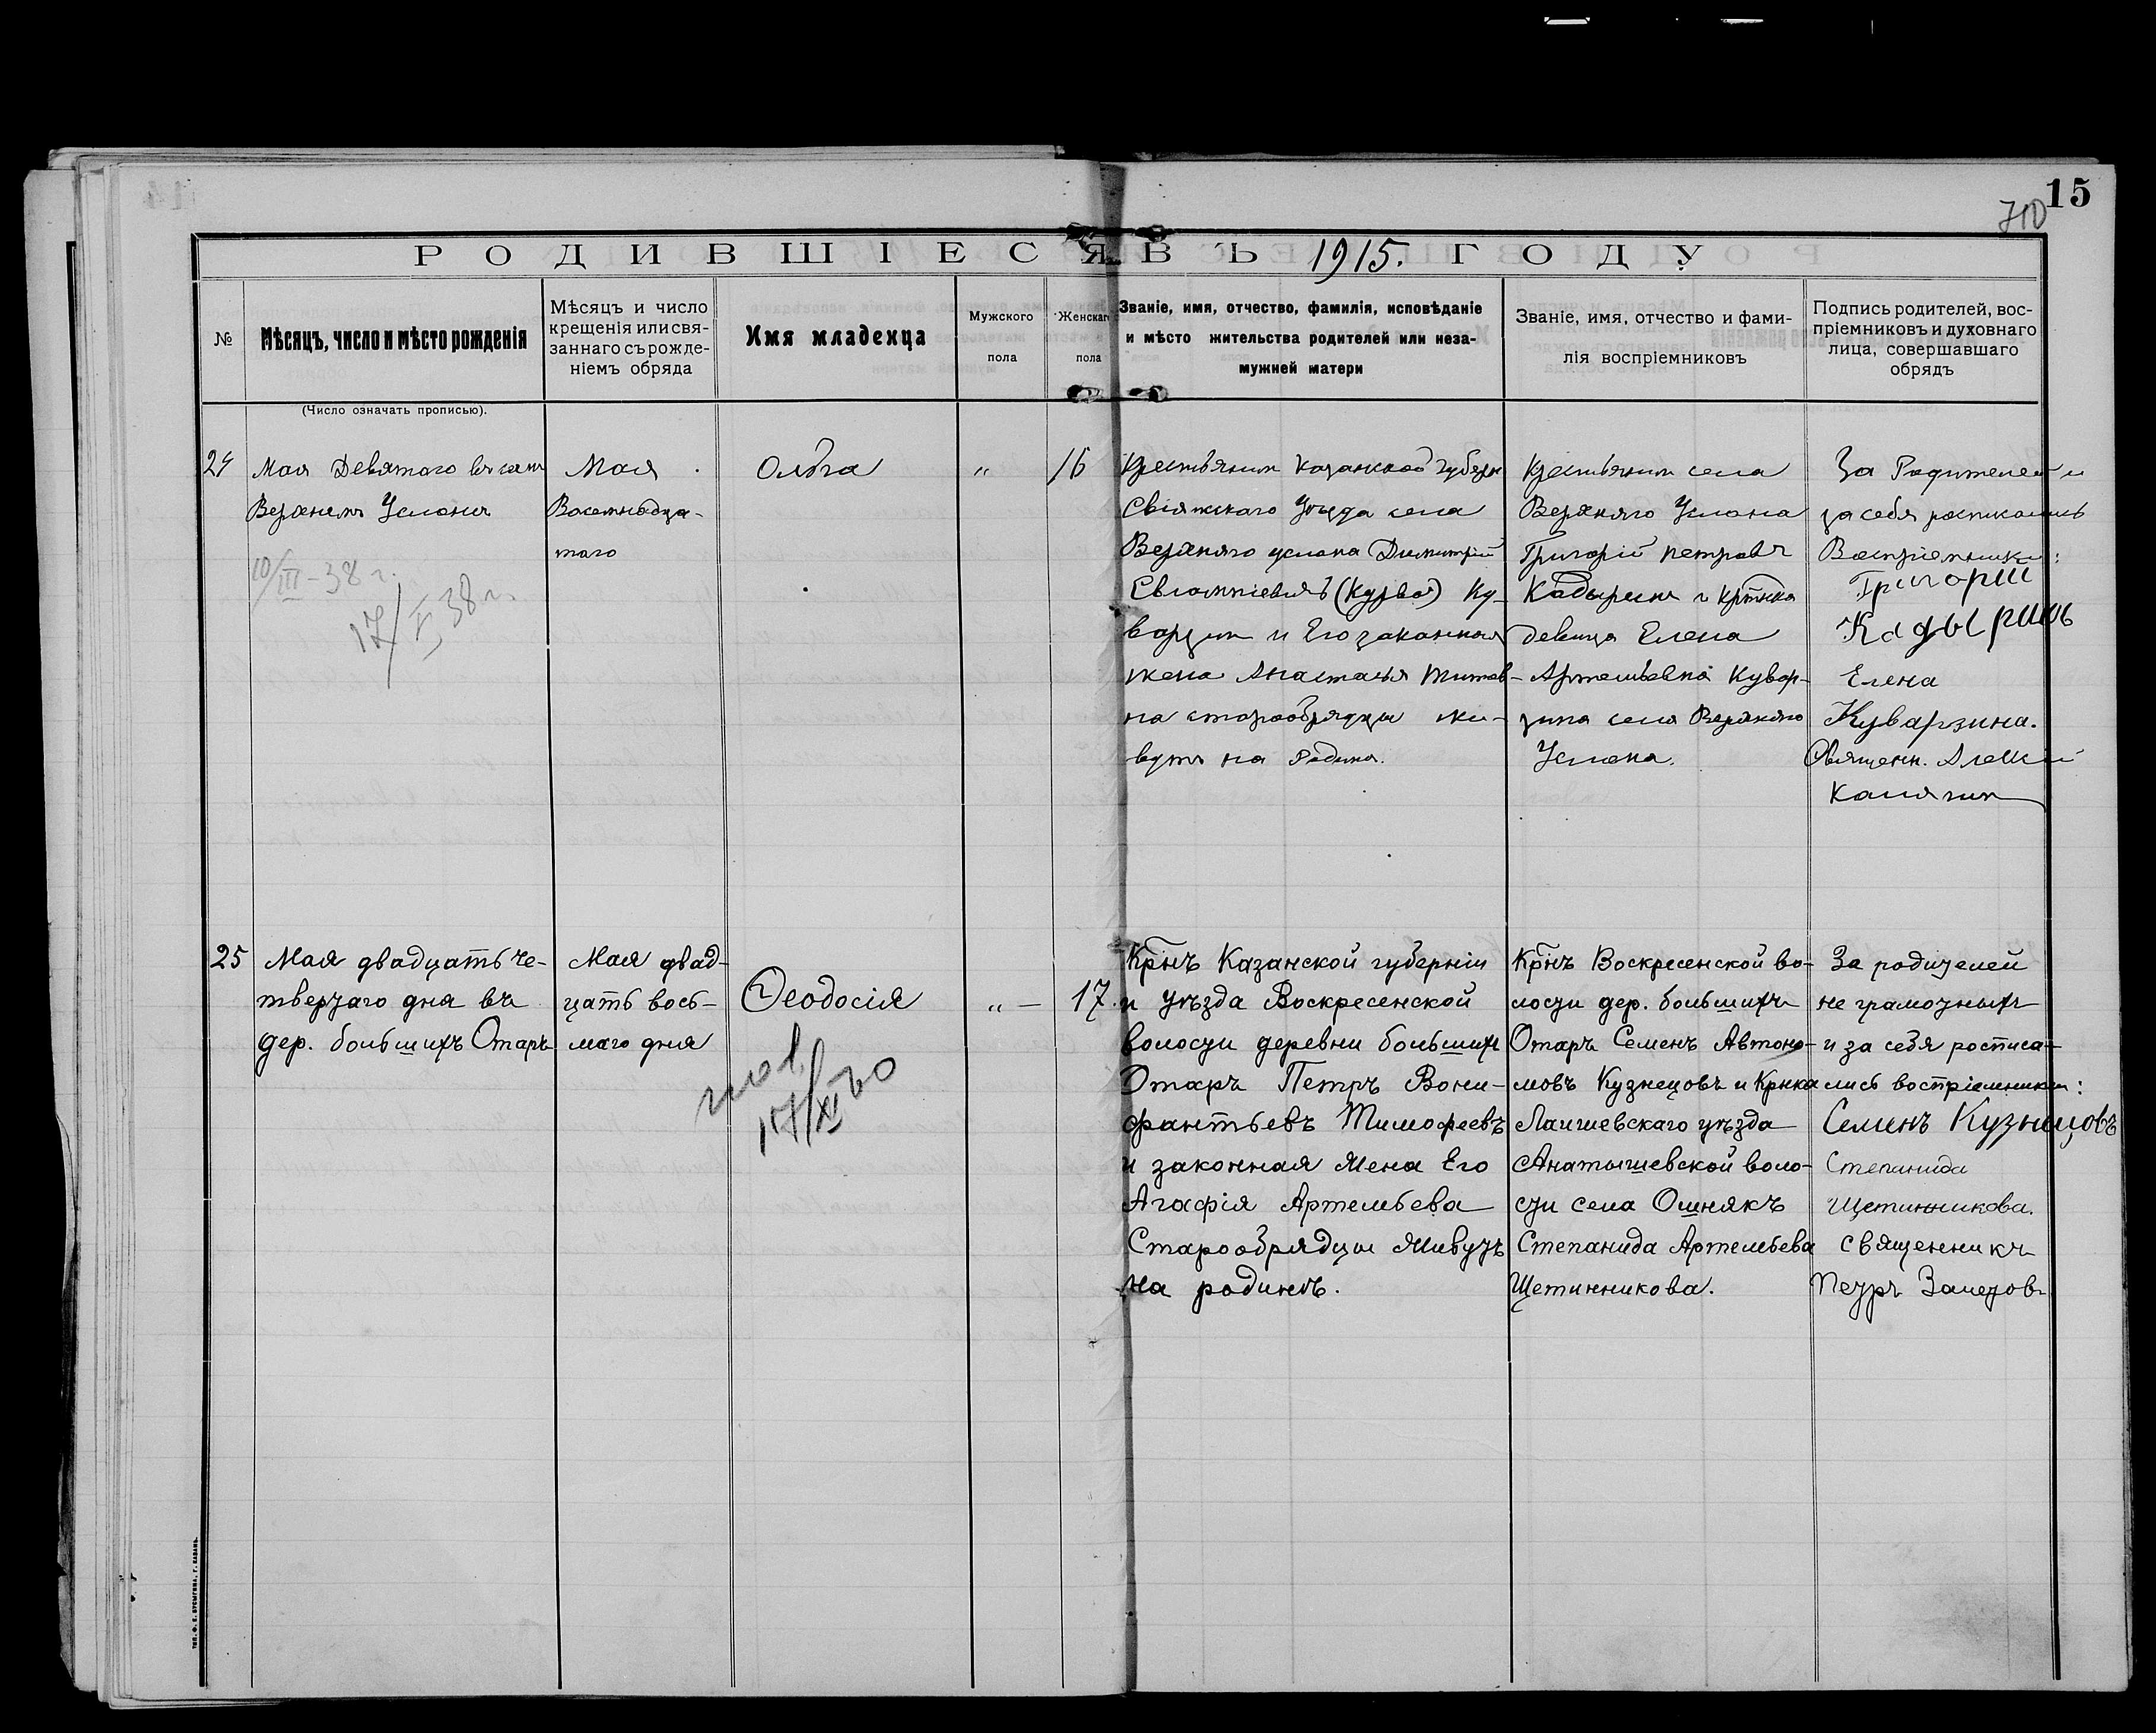 15
710
РОДИВШІЕСЯ ВЪ 1915. ГОДУ
№
Мѣсяцъ, число и мѣсто рожденія
(Число означать прописью).
Мѣсяцъ и число
крещенія или свя-
заннаго съ рожде-
ніемъ обряда
Имя младенца
Мужского
пола
Женскаго
пола
Званіе, имя, отчество, фамилія, исповѣданіе
и мѣсто жительства родителей или неза-
мужней матери
Званіе, имя, отчество и фами-
лія воспріемниковъ
Подпись родителей, вос-
пріемниковъ и духовнаго
лица, совершавшаго
обрядъ
24
Мая Девятаго въ селѣ
Верхнемъ Услонѣ
10/III-38 г.
17/V 38 г.
Мая
Восемнадца-
таго
Ольга
"
16
Крестьянинъ Казанской Губерн
Свіяжскаго Уѣзда села
Верхняго Услона Димитрій
Евлампіевичъ Ку-
варзин и Его законная
жена Анастасья Титов-
на старообрядцы жи-
вутъ на Родинѣ.
Крестьянинъ села
Верхняго Услона
Григорій Петровъ
Кадыринъ и
девица Елена
Артемьевна Кувар-
зина села Верхняго
Услона.
За Родителей и
за себя росписались
Воспріемники:
Григорий
Кадыринъ
Елена
Куварзина.
Священн. Алексій
Калягин
25
Мая двадцать че-
твертаго дня въ
дер. большихъ Отаръ
Мая двад-
цать вось-
маго дня
Ѳеодосія
17/XI 20
" —
17.
Кр͠нъ Казанской губерніи
и уѣзда Воскресенской
волости деревни большихъ
Отаръ Петръ Вони-
фантьевъ Тимофеевъ
и законная жена Его
Агафія Артемьева
Старообрядцы живутъ
на родинѣ.
Кр͠нъ Воскресенской во-
лости дер. большихъ
Отаръ Семенъ Автоно-
мовъ Кузнецовъ и Крнка
Лаишевскаго уѣзда
Анатышевской воло-
сти села Ошнякъ
Степанида Артемьева
Щетинникова.
За родителей
не грамотныхъ
и за себя росписа-
лись воспріемники:
Семенъ Кузнецовъ
Степанида
Щетинникова.
Священникъ
Петръ Залетов
ТИП. Ф. П. БУСЫГИНА, Г. КАЗАНЬ.